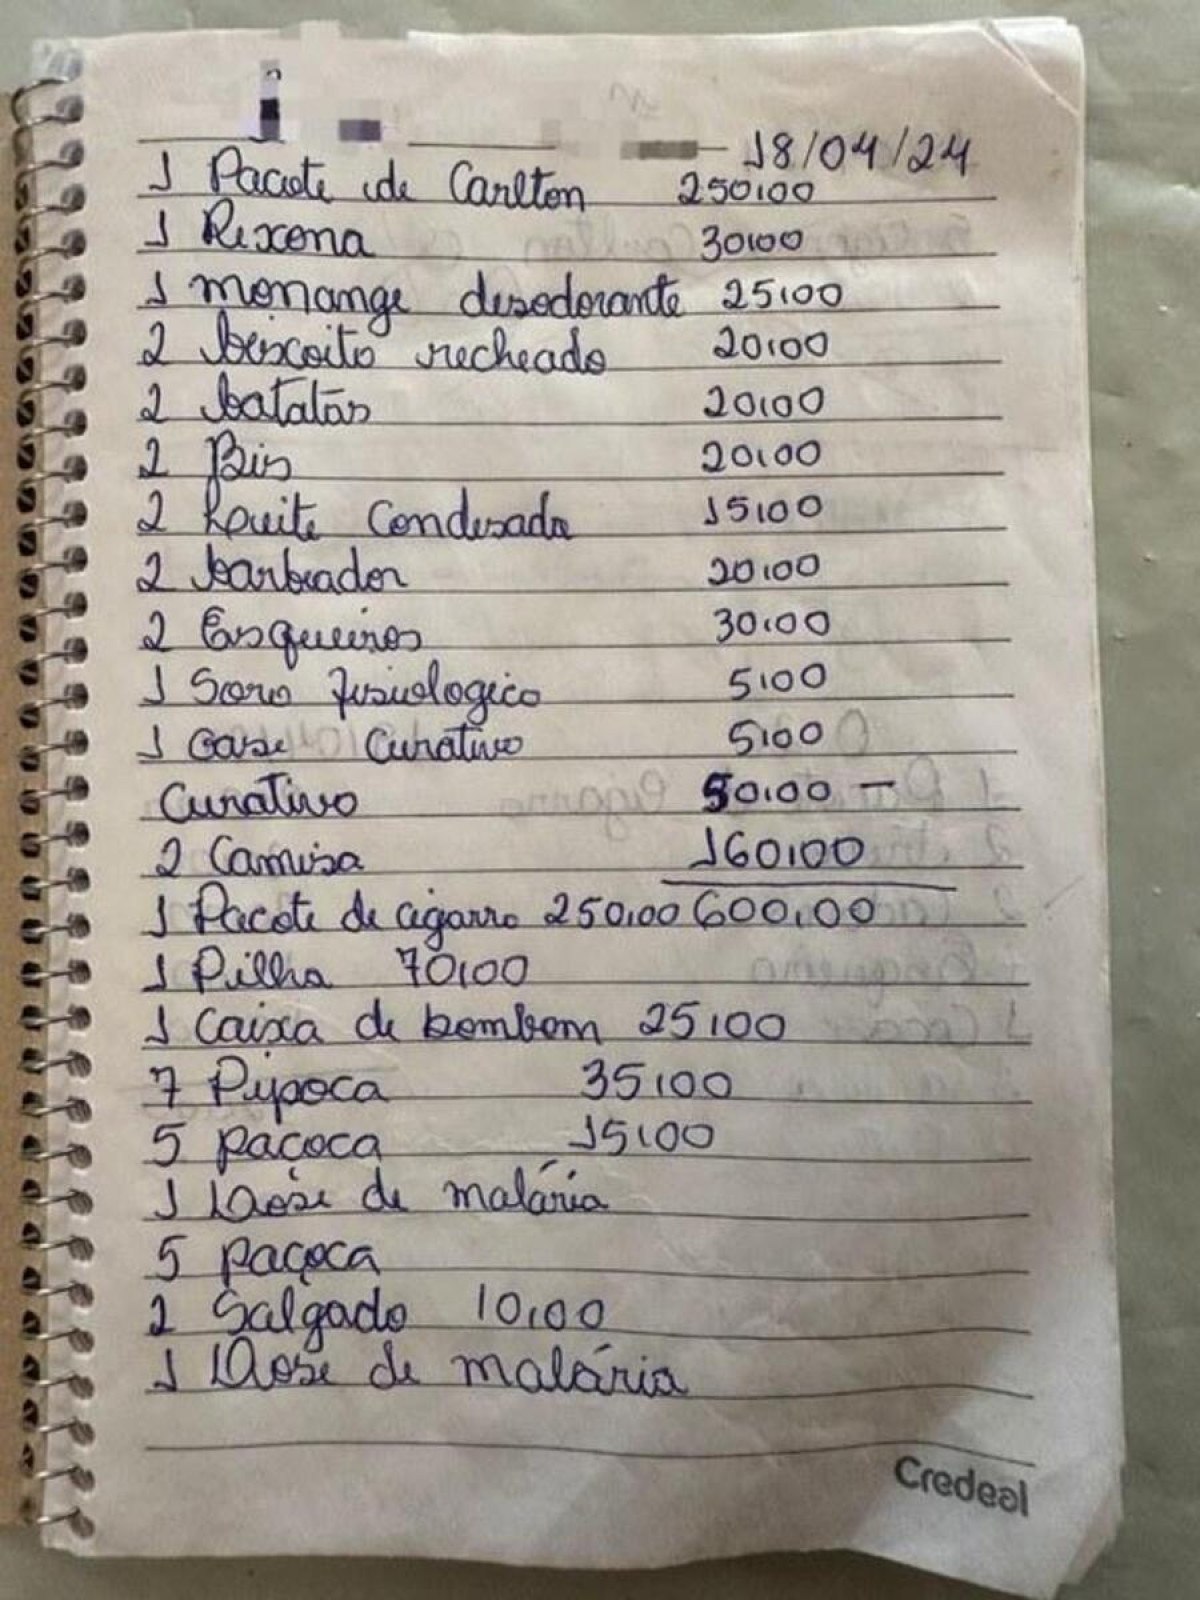 18/04/24
1 Pacote de Carlton 250,00
1 Rexona 30,00
1 monange desodorante 25,00
2 biscoito recheado 20,00
2 batatas 20,00
2 Bis 20,00
2 Leite Condesada 15,00
2 barbeador 20,00
2 Esqueiros 30,00
1 Soro fisiologico 5,00
1 Gase Curativo 5,00
Curativo 50,00 —
2 Camisa 160,00
1 Pacote de cigarro 250,00 600,00
1 Pilha 70,00
1 Caixa de bombom 25,00
7 Pipoca 35,00
5 paçoca 15,00
1 Dose de malária
5 paçoca
2 Salgado 10,00
1 Dose de malária
Credeal